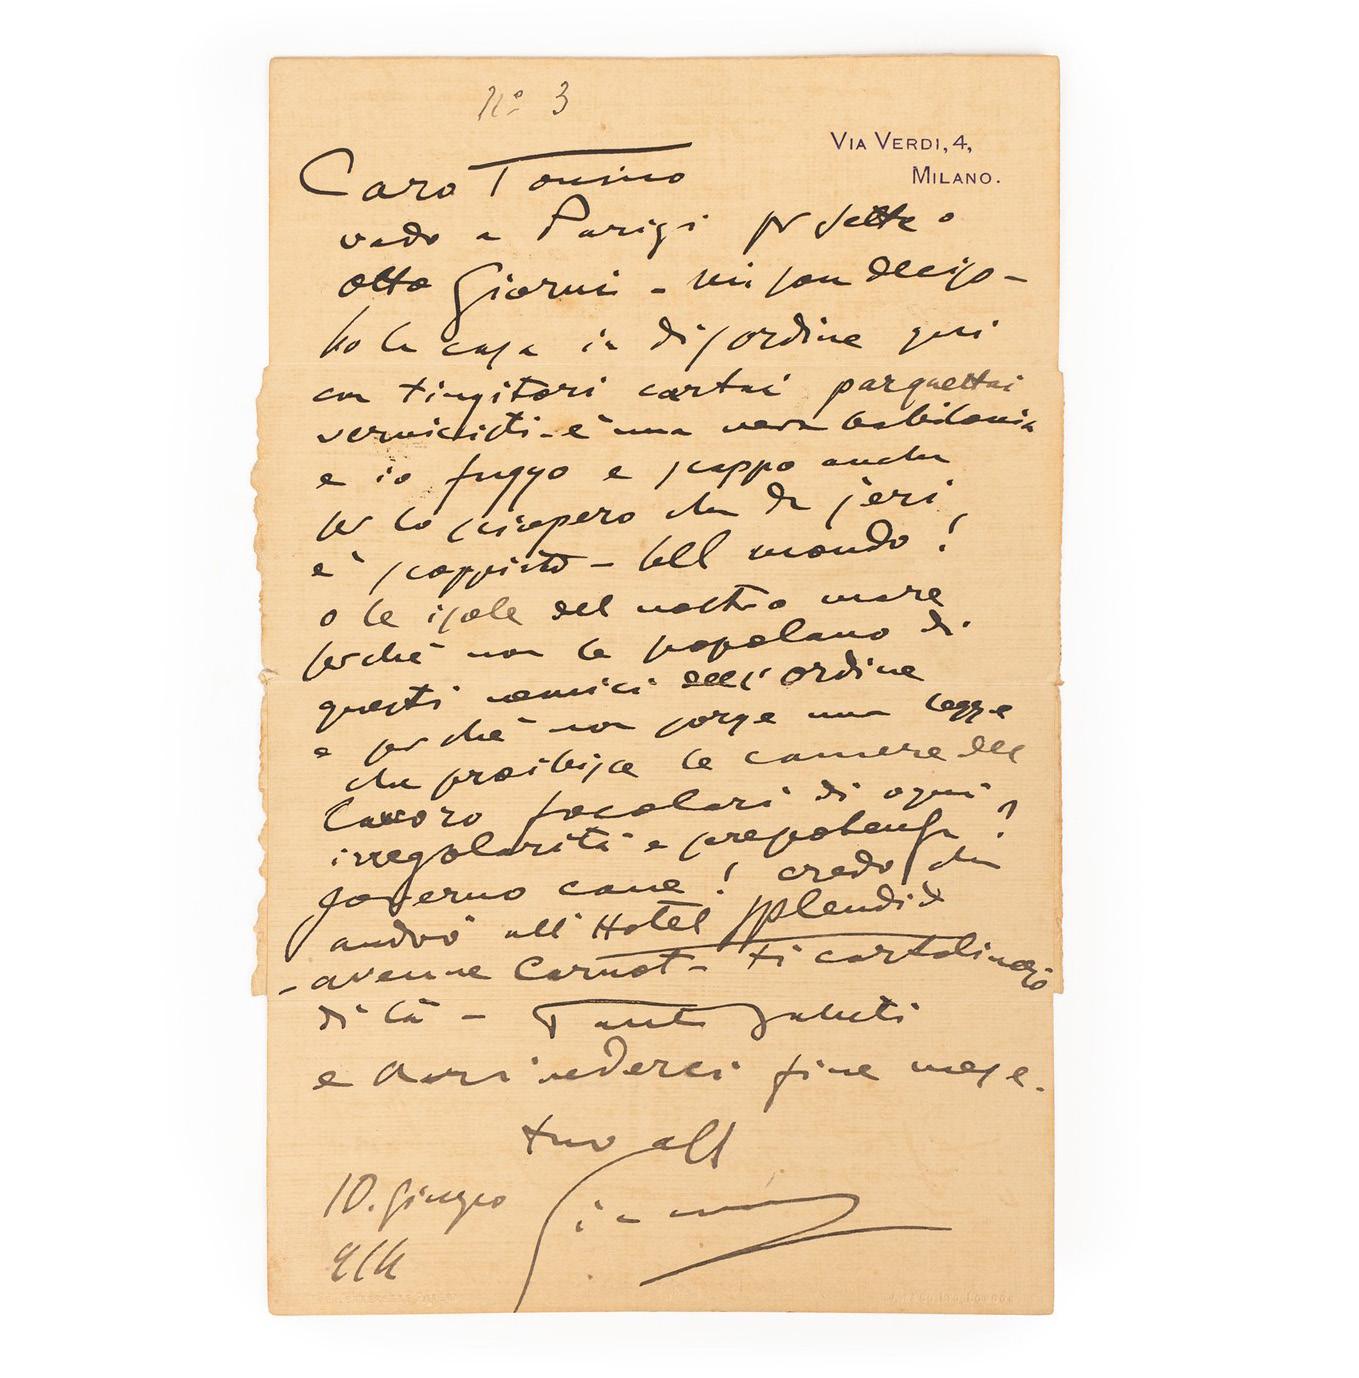 No 3
Via Verdi, 4,
Milano.
Caro Tonino
vado a Parigi per sette o
otto Giorni - mi son deciso -
ho la casa in disordine qui
con tingitori cartai parquettai
vernicisti - è una vera babilonia
e io fuggo e scappo anche
per lo sciopero che da jeri
è scoppiato - bell mondo!
o le isole del nostro mare
perché non le popolano di
questi nemici dell'ordine
e perché non sorge una legge
che proibisce le camere del
lavoro focolari di ogni
irregolarità e prepotenza?
governo cane! credo che
andrò all'Hotel Splendid
- avenue Carnot - ti cartolinerò
di là - Tanti saluti
e arrivederci fine mese.
tuo aff
10. giugno